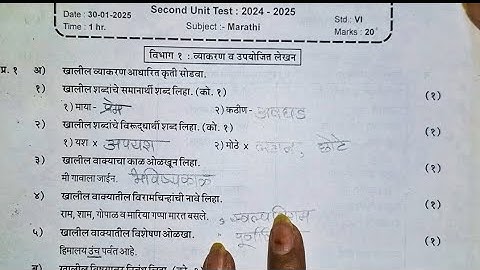 Second Unit Test : 2024 - 2025
Date : 30-01-2025
Std.: VI
Time : 1 hr.
Subject :- Marathi
Marks : 20
विभाग १ : व्याकरण व उपयोजित लेखन
प्र. १ अ) खालील व्याकरण आधारित कृती सोडवा.
१) खालील शब्दांचे समानार्थी शब्द लिहा. (को. १) (१)
१) माया - प्रेम २) कठीण - अवघड
२) खालील शब्दांचे विरुद्धार्थी शब्द लिहा. (को. १) (१)
१) यश × अपयश २) मोठे × लहान, छोटे
३) खालील वाक्याचा काळ ओळखून लिहा. (१)
मी गावाला जाईन. भविष्यकाळ
४) खालील वाक्यातील विरामचिन्हांची नावे लिहा. (१)
राम, शाम, गोपाळ व मारिया गप्पा मारत बसले. , स्वल्पविराम
५) खालील वाक्यातील विशेषण ओळखा. (१)
हिमालय उंच पर्वत आहे.